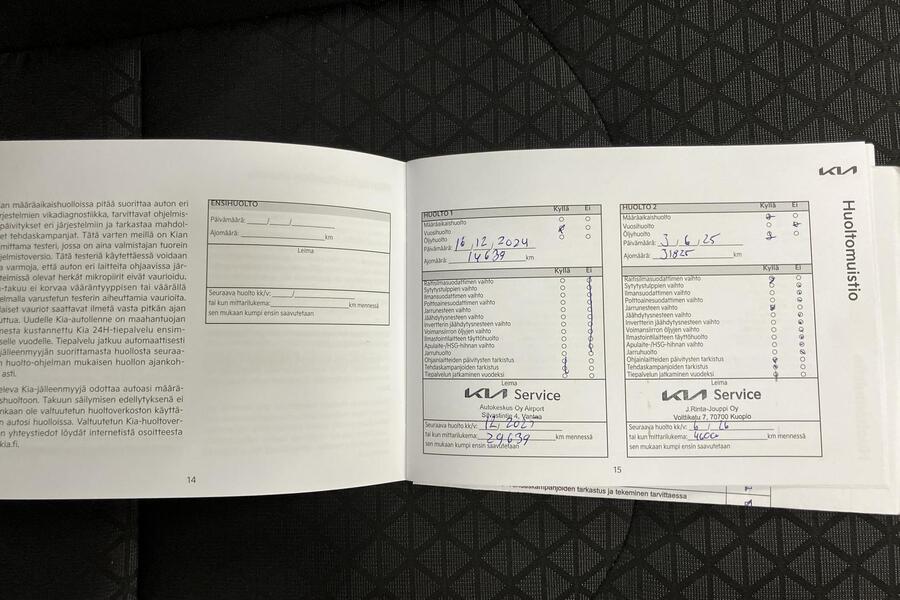 an määräaikaishuolloissa pitää suorittaa auton eri
rjestelmien vikadiagnostiikka, tarvittavat ohjelmis-
päivitykset eri järjestelmiin ja tarkastaa mahdol-
et tehdaskampanjat. Tätä varten meillä on Kian
mittama testeri, jossa on aina valmistajan tuorein
jelmistoversio. Tätä testeriä käytettäessä voidaan
a varmoja, että auton eri laitteita ohjaavissa jär-
telmissä olevat herkät mikropiirit eivät vaurioidu.
-takuu ei korvaa vääräntyyppisen tai väärällä
elmalla varustetun testerin aiheuttamia vaurioita.
laiset vauriot saattavat ilmetä vasta pitkän ajan
uttua. Uudelle Kia-autollenne on maahantuojan
nesta kustannettu Kia 24H-tiepalvelu ensim-
selle vuodelle. Tiepalvelu jatkuu automaattisesti
jälleenmyyjän suorittamasta huollosta seuraa-
n huolto-ohjelman mukaisen huollon ajankoh-
asti.
eleva Kia-jälleenmyyjä odottaa autoasi määrä-
shuoltoon. Takuun säilymisen edellytyksenä ei
nkaan ole valtuutetun huoltoverkoston käyttä-
n autosi huolloissa. Valtuutetun Kia-huoltover-
n yhteystiedot löydät internetistä osoitteesta
kia.fi.
ENSIHUOLTO
Päivämäärä: / /
Ajomäärä: km
Leima
Seuraava huolto kk/v: /
tai kun mittarilukema: km mennessä
sen mukaan kumpi ensin saavutetaan
14
KIA
Huoltomuistio
HUOLTO 1 Kyllä Ei
Määräaikaishuolto
Vuosihuolto
Öljyhuolto
Päivämäärä: 16, 12, 2024
Ajomäärä: 14639 km
Kyllä Ei
Raitisilmasuodattimen vaihto
Sytytystulppien vaihto
Ilmansuodattimen vaihto
Polttoainesuodattimen vaihto
Jarrunesteen vaihto
Jäähdytysnesteen vaihto
Invertterin jäähdytysnesteen vaihto
Voimansiirron öljyjen vaihto
Ilmastointilaitteen täyttöhuolto
Apulaite-/HSG-hihnan vaihto
Jarruhuolto
Ohjainlaitteiden päivitysten tarkistus
Tehdaskampanjoiden tarkistus
Tiepalvelun jatkaminen vuodeksi
Leima
KIA Service
Autokeskus Oy Airport
Silvastintie 4, Vantaa
Seuraava huolto kk/v: 12, 2025
tai kun mittarilukema: 29639 km mennessä
sen mukaan kumpi ensin saavutetaan
HUOLTO 2 Kyllä Ei
Määräaikaishuolto
Vuosihuolto
Öljyhuolto
Päivämäärä: 3, 6, 25
Ajomäärä: 31825 km
Kyllä Ei
Raitisilmasuodattimen vaihto
Sytytystulppien vaihto
Ilmansuodattimen vaihto
Polttoainesuodattimen vaihto
Jarrunesteen vaihto
Jäähdytysnesteen vaihto
Invertterin jäähdytysnesteen vaihto
Voimansiirron öljyjen vaihto
Ilmastointilaitteen täyttöhuolto
Apulaite-/HSG-hihnan vaihto
Jarruhuolto
Ohjainlaitteiden päivitysten tarkistus
Tehdaskampanjoiden tarkistus
Tiepalvelun jatkaminen vuodeksi
Leima
KIA Service
J.Rinta-Jouppi Oy
Volttikatu 7, 70700 Kuopio
Seuraava huolto kk/v: 6, 26
tai kun mittarilukema: km mennessä
sen mukaan kumpi ensin saavutetaan
15
tarkastus ja tekeminen tarvittaessa